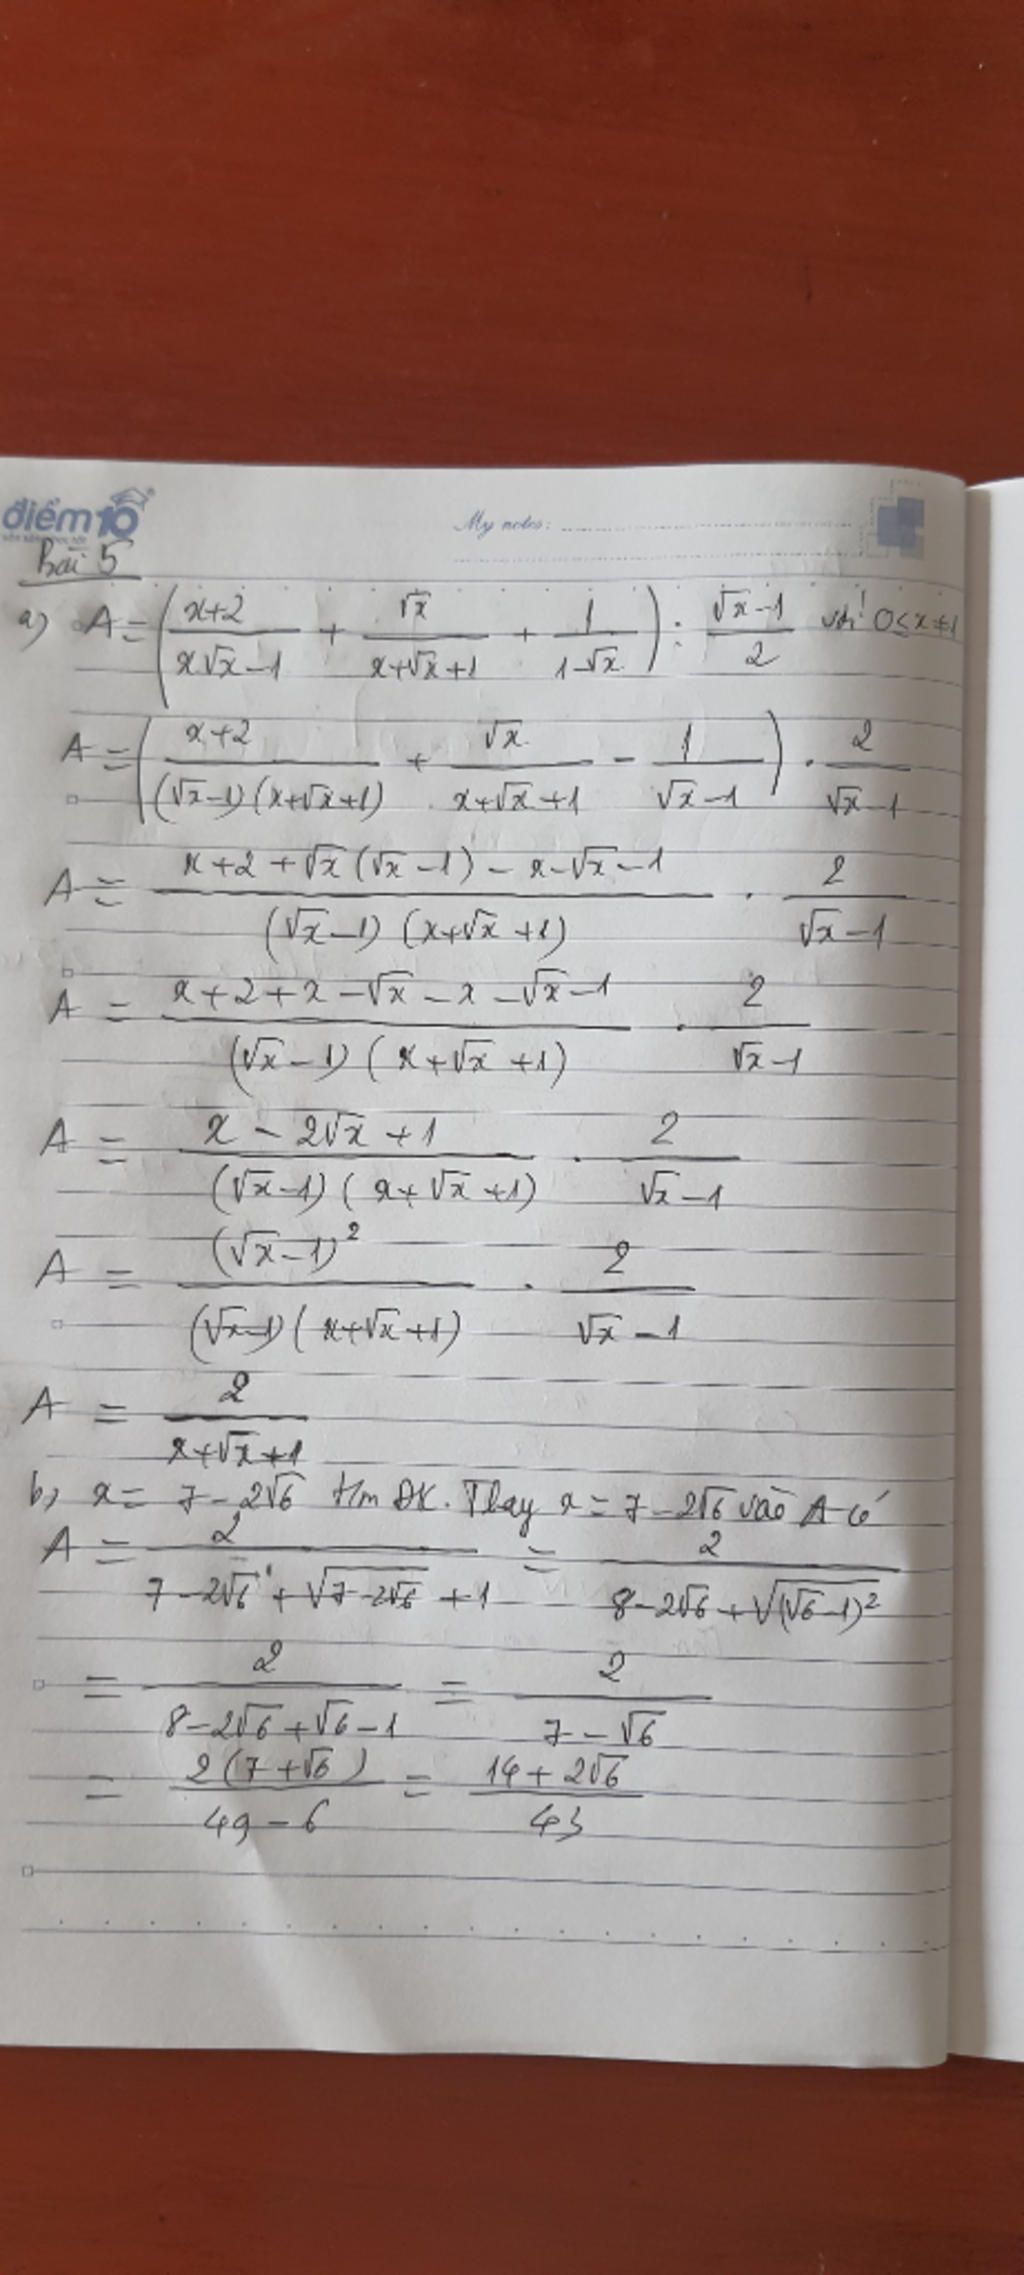 điểm10
My notes:
Bài 5
a) A = ( (x+2)/(x√x-1) + √x/(x+√x+1) + 1/(1-√x) ) : (√x-1)/2 với 0≤x≠1
A = ( (x+2)/((√x-1)(x+√x+1)) + √x/(x+√x+1) - 1/(√x-1) ) . 2/(√x-1)
A = (x+2+√x(√x-1)-x-√x-1)/((√x-1)(x+√x+1)) . 2/(√x-1)
A = (x+2+x-√x-x-√x-1)/((√x-1)(x+√x+1)) . 2/(√x-1)
A = (x-2√x+1)/((√x-1)(x+√x+1)) . 2/(√x-1)
A = (√x-1)²/((√x-1)(x+√x+1)) . 2/(√x-1)
A = 2/(x+√x+1)
b, x = 7-2√6 t/m ĐK. Thay x = 7-2√6 vào A có
A = 2/(7-2√6+√(7-2√6)+1) = 2/(8-2√6+√((√6-1)²))
= 2/(8-2√6+√6-1) = 2/(7-√6)
= 2(7+√6)/(49-6) = (14+2√6)/43